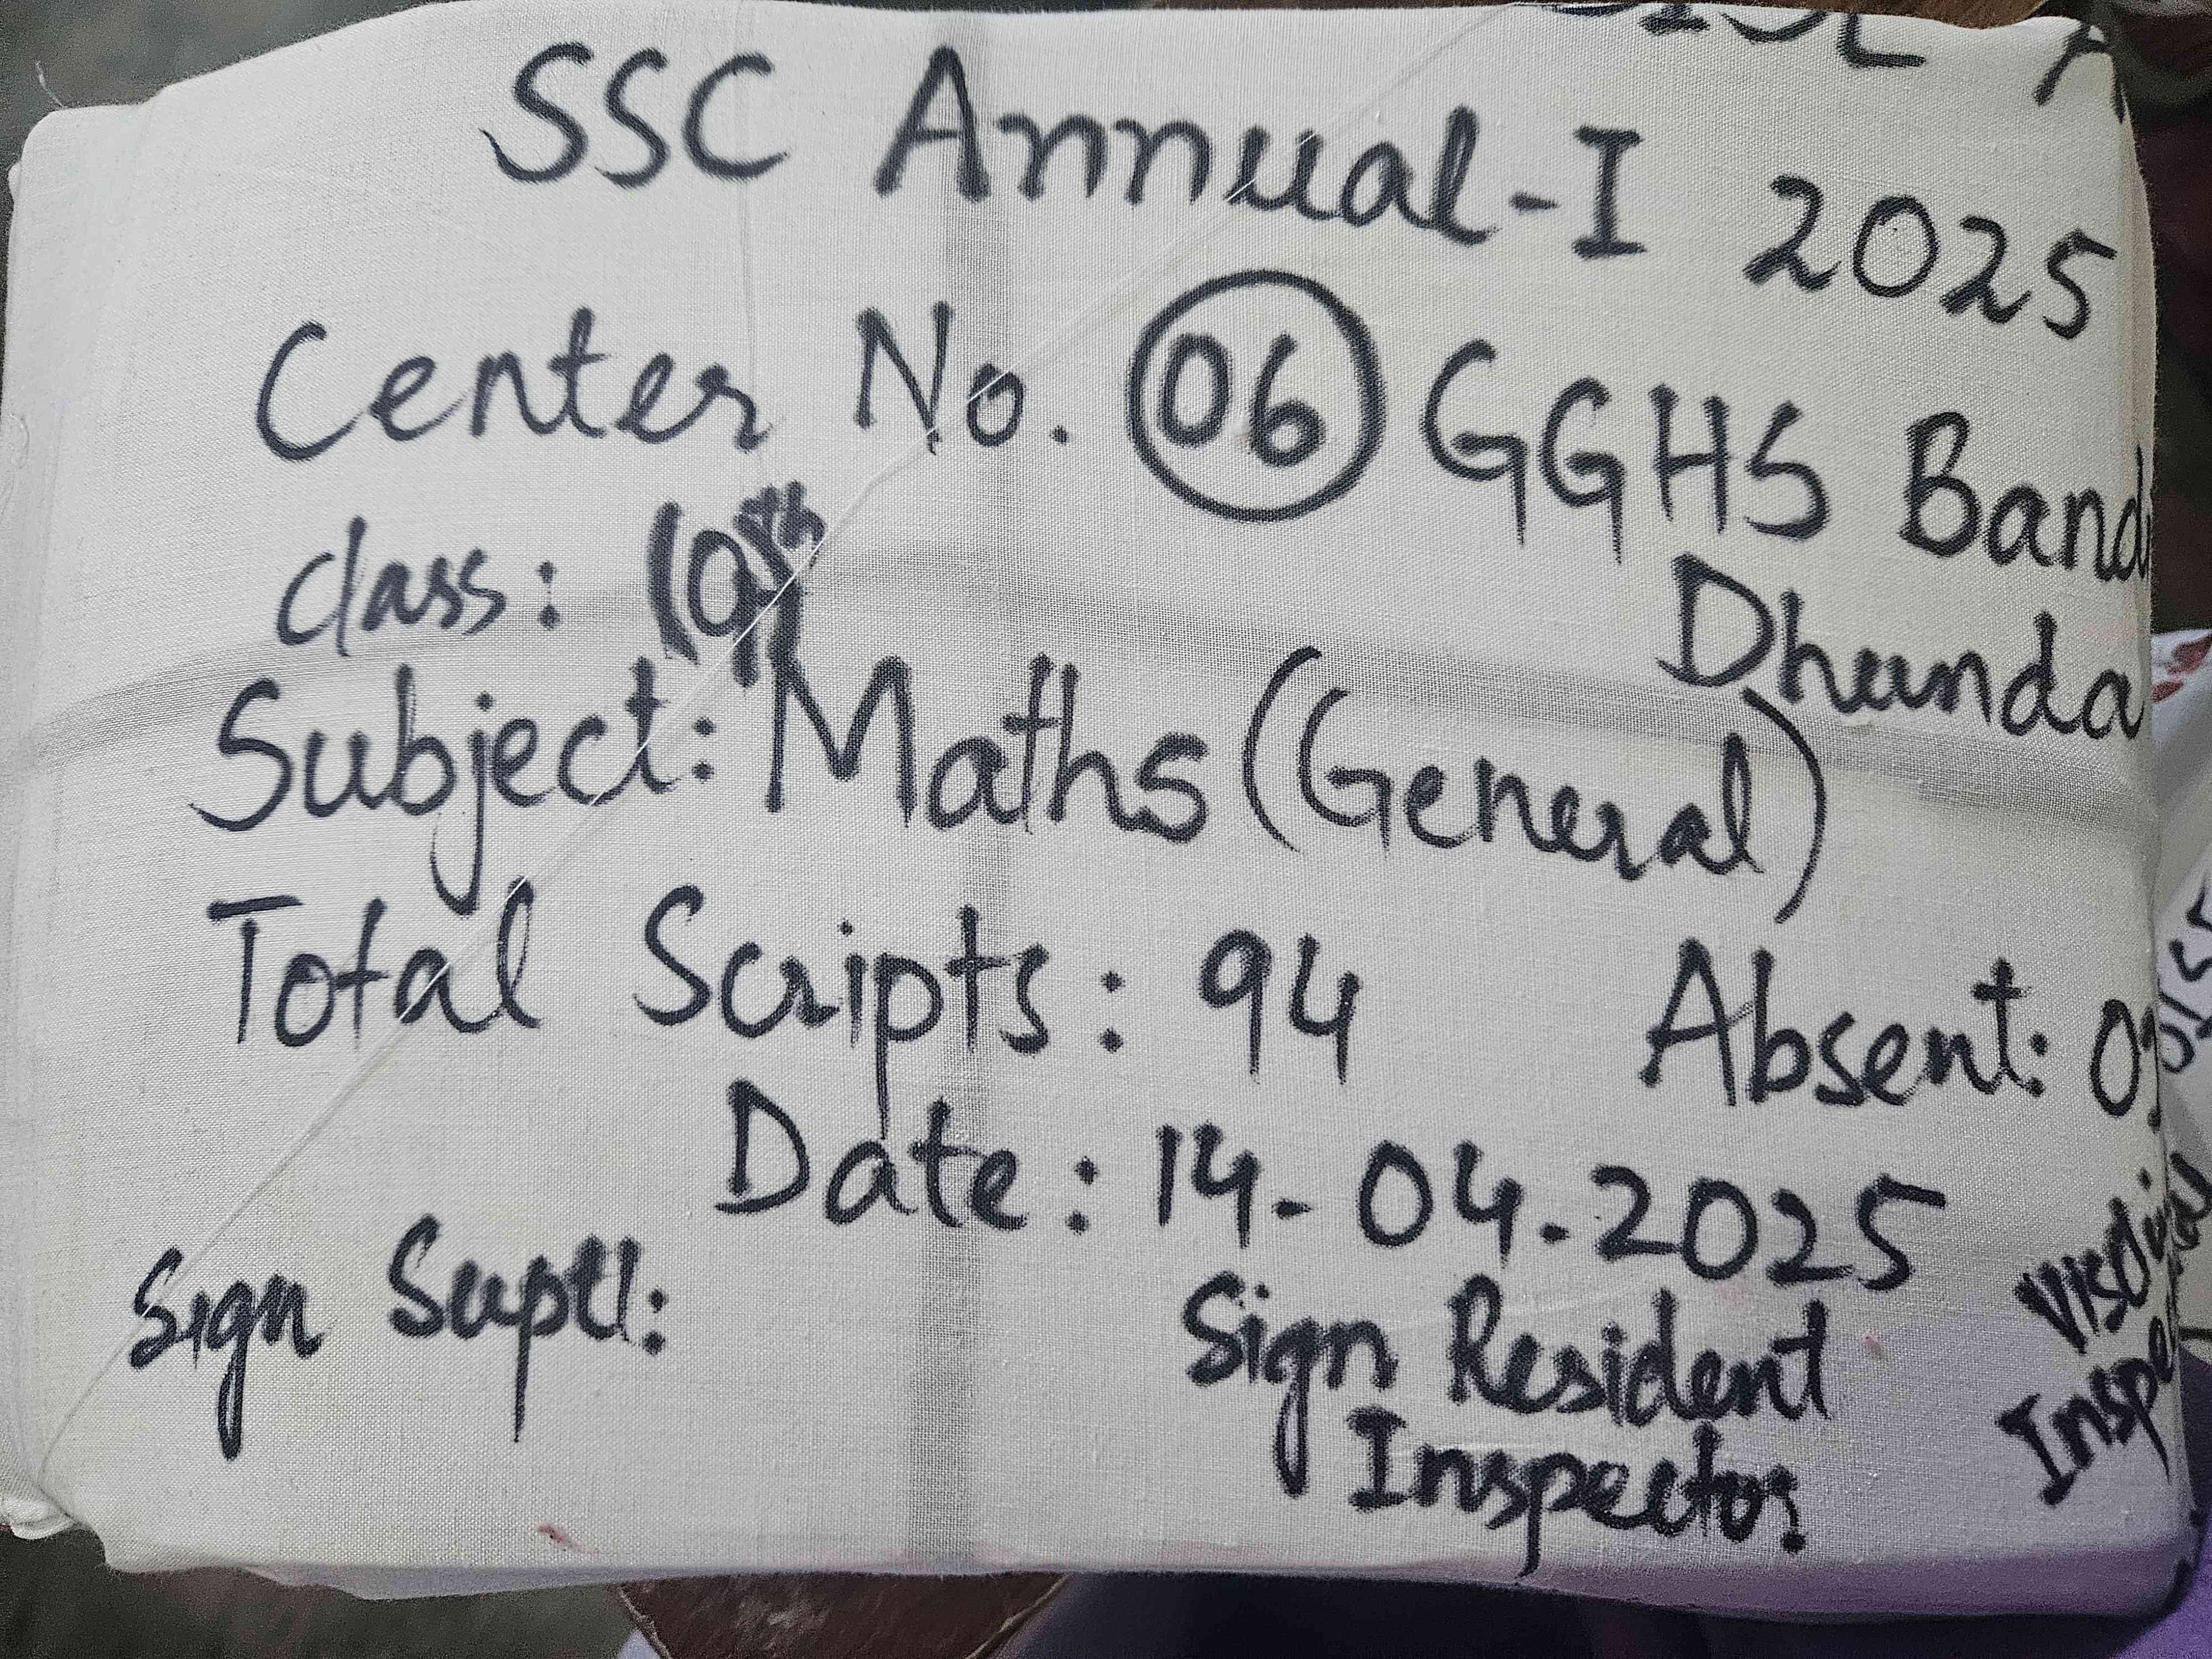 SSC Annual-I 2025
Center No. 06 GGHS Band
Dhunda
class: 10th
Subject: Maths (General)
Total Scripts: 94 Absent: 0
Date: 14-04.2025
Sign Suptt:
Sign Resident
Inspector